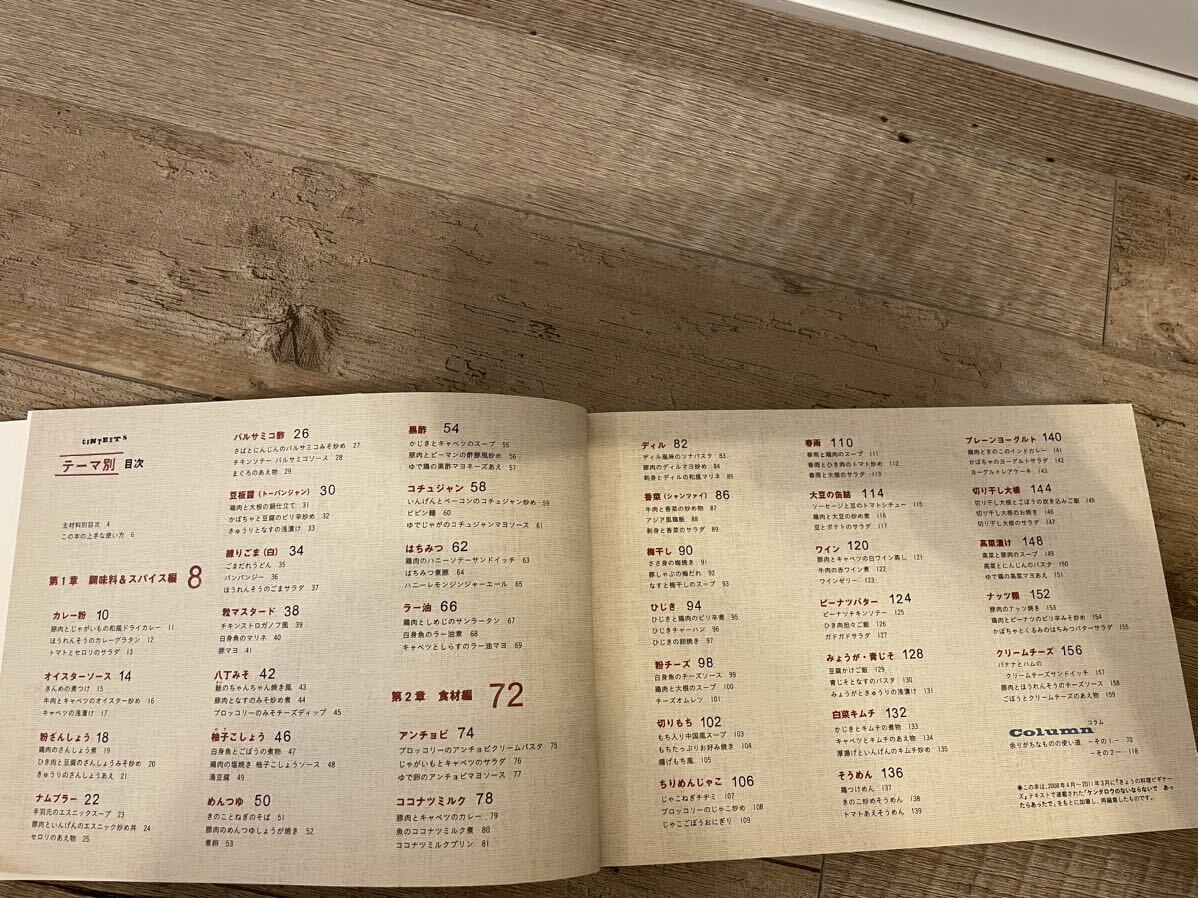 CONTENTS
テーマ別 目次
主材料別目次 4
この本の上手な使い方 6
第1章 調味料&スパイス編 8
カレー粉 10
豚肉とじゃがいもの和風ドライカレー 11
ほうれんそうのカレーグラタン 12
トマトとセロリのサラダ 13
オイスターソース 14
きんめの煮つけ 15
牛肉とキャベツのオイスター炒め 16
キャベツの浅漬け 17
粉ざんしょう 18
鶏肉のさんしょう煮 19
ひき肉と豆腐のさんしょうみそ炒め 20
きゅうりのさんしょうあえ 21
ナムプラー 22
手羽元のエスニックスープ 23
豚肉といんげんのエスニック炒め丼 24
セロリのあえ物 25
バルサミコ酢 26
さばとにんじんのバルサミコみそ炒め 27
チキンソテー バルサミコソース 28
まぐろのあえ物 29
豆板醤(トーバンジャン) 30
鶏肉と大根の鍋仕立て 31
かぼちゃと豆腐のピリ辛炒め 32
きゅうりとなすの浅漬け 33
練りごま(白) 34
ごまだれうどん 35
バンバンジー 36
ほうれんそうのごまサラダ 37
粒マスタード 38
チキンストロガノフ風 39
白身魚のマリネ 40
豚マヨ 41
八丁みそ 42
鮭のちゃんちゃん焼き風 43
豚肉となすのみそ炒め 44
ブロッコリーのみそチーズディップ 45
柚子こしょう 46
白身魚とごぼうの煮物 47
鶏肉の塩焼き 柚子こしょうソース 48
湯豆腐 49
めんつゆ 50
きのことねぎのそば 51
豚肉のめんつゆしょうが焼き 52
煮卵 53
黒酢 54
かじきとキャベツのスープ 55
豚肉とピーマンの酢豚風炒め 56
ゆで鶏の黒酢マヨネーズあえ 57
コチュジャン 58
いんげんとベーコンのコチュジャン炒め 59
ビビン麺 60
ゆでじゃがのコチュジャンマヨソース 61
はちみつ 62
鶏肉のハニーソテーサンドイッチ 63
はちみつ煮豚 64
ハニーレモンジンジャーエール 65
ラー油 66
鶏肉としめじのサンラータン 67
白身魚のラー油煮 68
キャベツとしらすのラー油マヨ 69
第2章 食材編 72
アンチョビ 74
ブロッコリーのアンチョビクリームパスタ 75
じゃがいもとキャベツのサラダ 76
ゆで卵のアンチョビマヨソース 77
ココナツミルク 78
豚肉とキャベツのカレー 79
魚のココナツミルク煮 80
ココナツミルクプリン 81
ディル 82
ディル風味のツナパスタ 83
豚肉のディルマヨ炒め 84
刺身とディルの和風マリネ 85
香菜(シャンツァイ) 86
牛肉と香菜の炒め物 87
アジア風鶏飯 88
刺身と香菜のサラダ 89
梅干し 90
ささ身の梅焼き 91
豚しゃぶの梅だれ 92
なすと梅干しのスープ 93
ひじき 94
ひじきと鶏肉のピリ辛煮 95
ひじきチャーハン 96
ひじきの卵焼き 97
粉チーズ 98
白身魚のチーズソース 99
鶏肉と大根のスープ 100
チーズオムレツ 101
切りもち 102
もち入り中国風スープ 103
もちたっぷりお好み焼き 104
揚げもち風 105
ちりめんじゃこ 106
じゃこねぎチヂミ 107
ブロッコリーのじゃこ炒め 108
じゃこごぼうおにぎり 109
春雨 110
春雨と鶏肉のスープ 111
春雨とひき肉のトマト炒め 112
春雨と鶏のサラダ 113
大豆の缶詰 114
ソーセージと豆のトマトシチュー 115
鶏肉と大豆の炒め煮 116
豆とポテトのサラダ 117
ワイン 120
豚肉とキャベツの白ワイン蒸し 121
牛肉の赤ワイン煮 122
ワインゼリー 123
ピーナツバター 124
ピーナツチキンソテー 125
ひき肉担々ご飯 126
ガドガドサラダ 127
みょうが・青じそ 128
豆腐かけご飯 129
青じそとなすのパスタ 130
みょうがときゅうりの浅漬け 131
白菜キムチ 132
かじきとキムチの煮物 133
キャベツとキムチのあえ物 134
厚揚げといんげんのキムチ炒め 135
そうめん 136
鶏つけめん 137
きのこ炒めそうめん 138
トマトあえそうめん 139
プレーンヨーグルト 140
鶏肉ときのこのインドカレー 141
かぼちゃのヨーグルトサラダ 142
ヨーグルトレアケーキ 143
切り干し大根 144
切り干し大根とごぼうの炊き込みご飯 145
切り干し大根のお焼き 146
切り干し大根のサラダ 147
高菜漬け 148
高菜と豚肉のスープ 149
高菜とにんじんのパスタ 150
ゆで鶏の高菜マヨあえ 151
ナッツ類 152
豚肉のナッツ焼き 153
鶏肉とピーナツのピリ辛みそ炒め 154
かぼちゃとくるみのはちみつバターサラダ 155
クリームチーズ 156
バナナとハムの
クリームチーズサンドイッチ 157
豚肉とほうれんそうのチーズソース 158
ごぼうとクリームチーズのあえ物 159
Column コラム
余りがちなものの使い道 −その1− 70
−その2− 118
●この本は、2008年4月〜2011年3月に『きょうの料理ビギナー
ズ』テキストで連載された「ケンタロウのないならないで あっ
たらあったで」をもとに加筆し、再編集したものです。